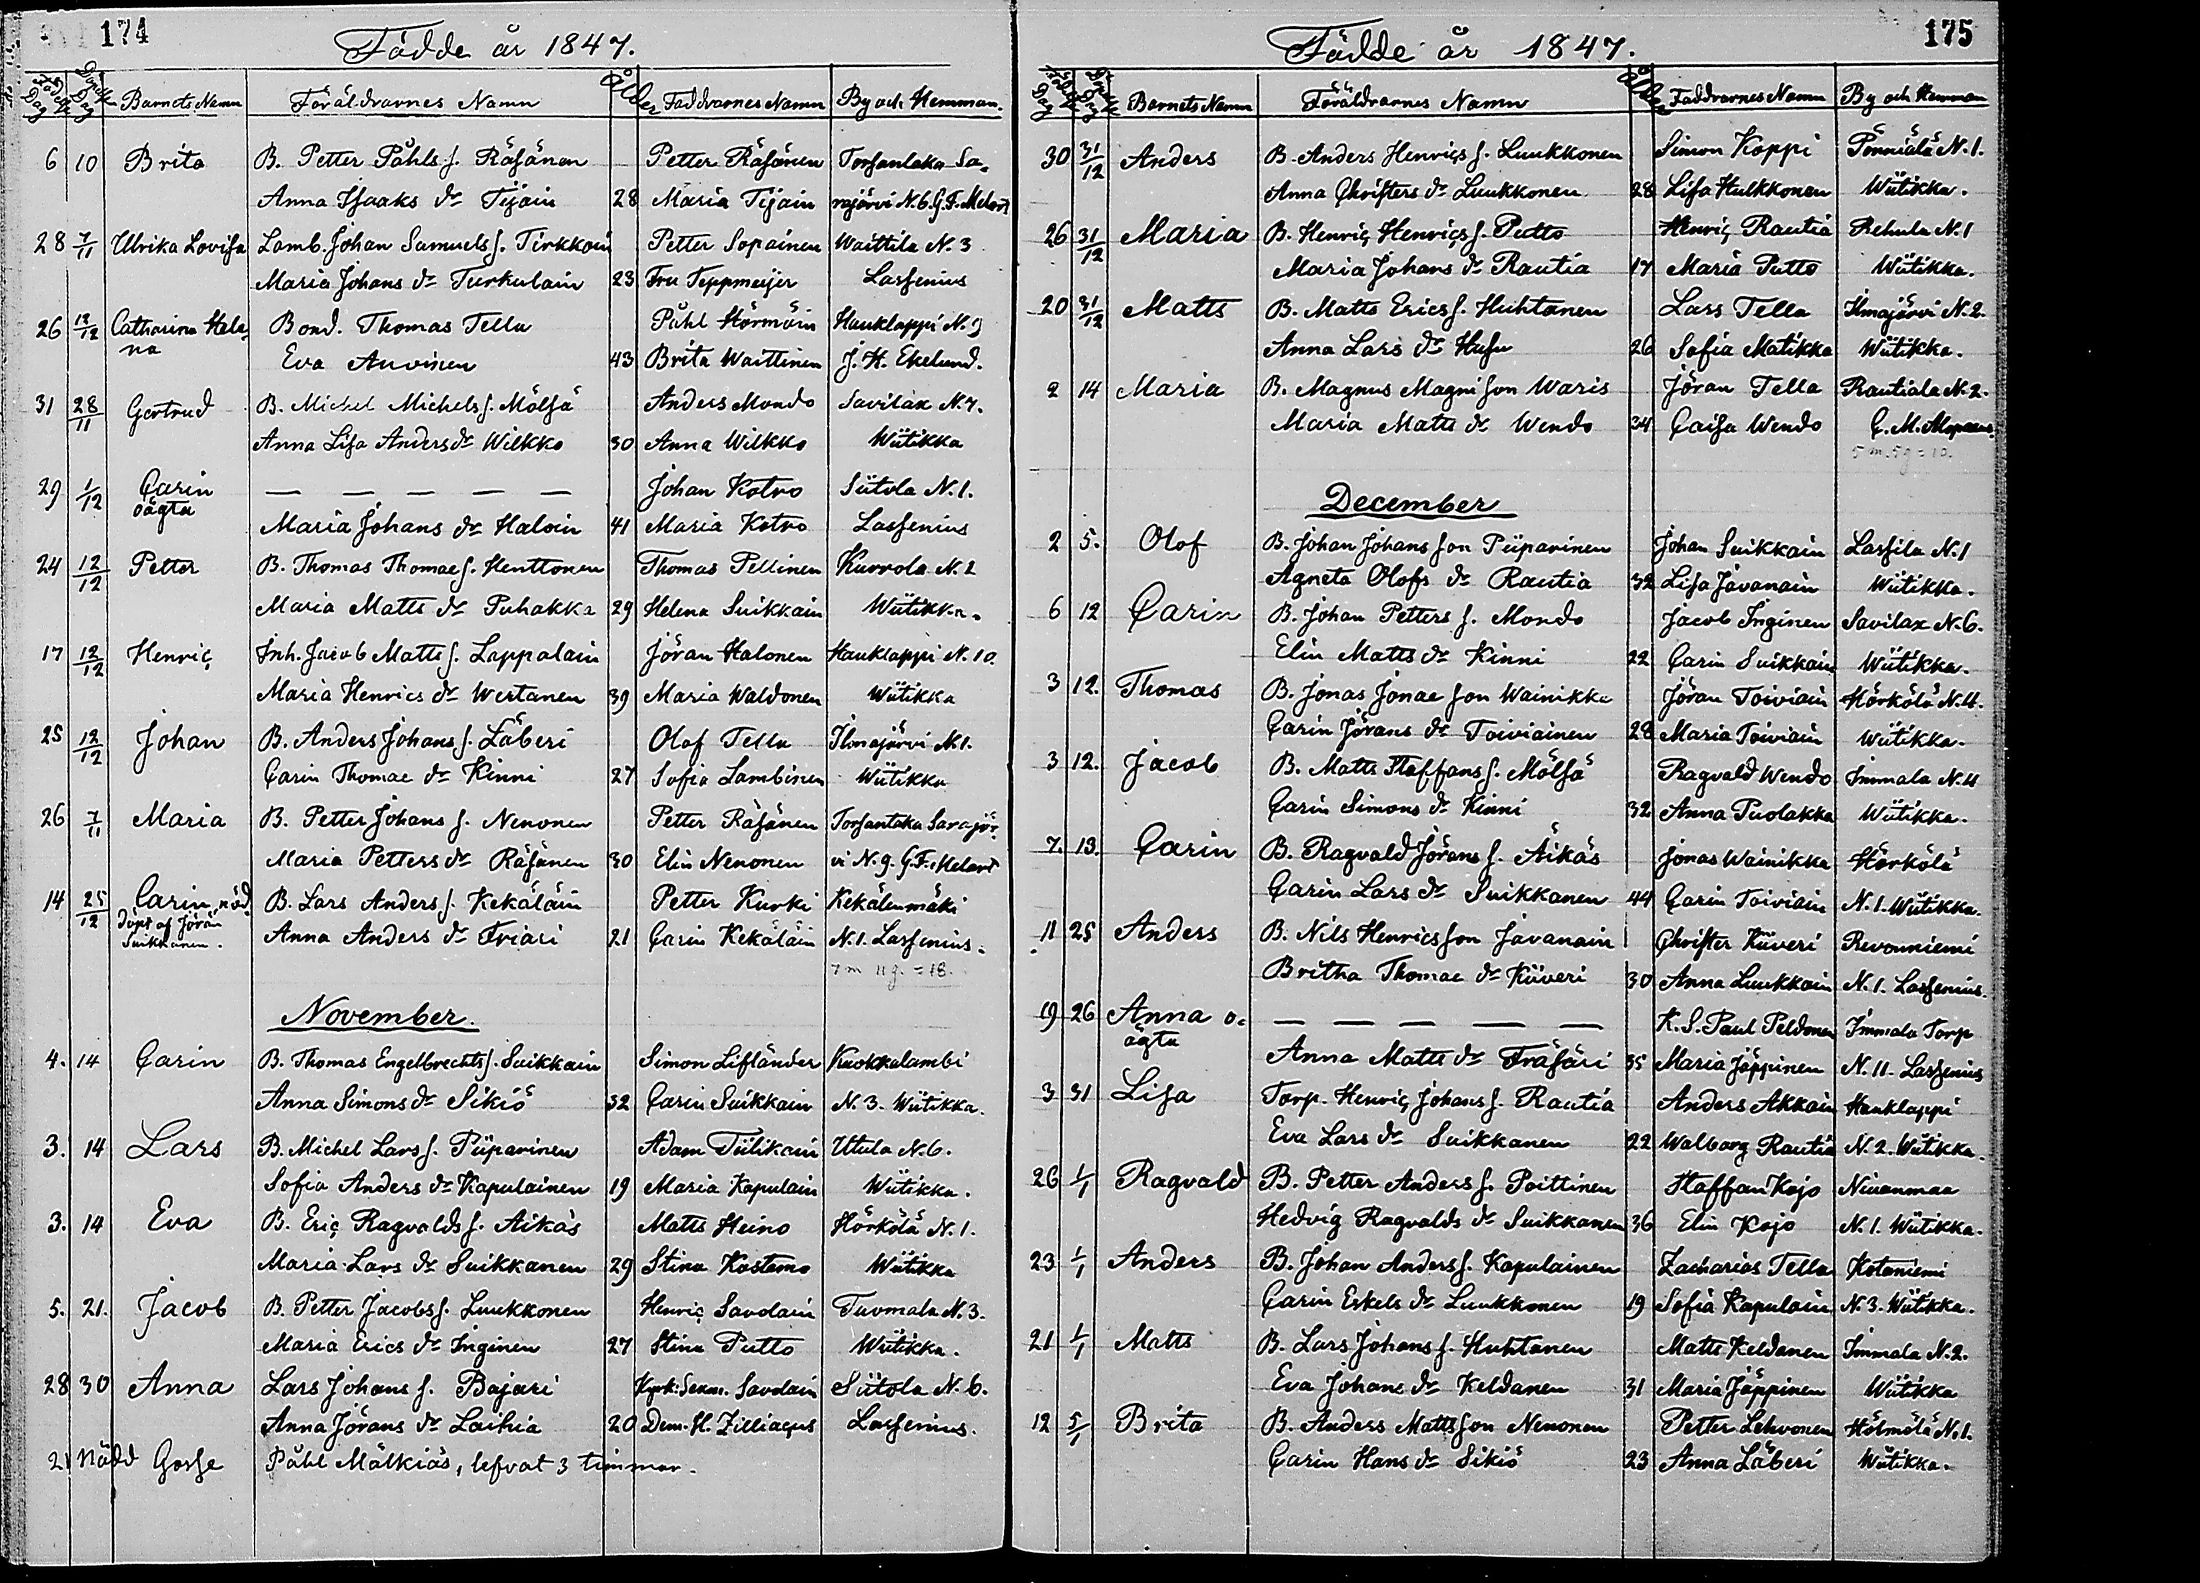 174
Födde år 1847.
Födelse Dag Döpelse Dag Barnets Namn Föräldrarnes Namn Ålder Faddrarnes Namn By och Hemman.
6 10 Brita B. Petter Påhls s. Räsänen Petter Räsänen Torsanlaka Sa-
Anna Isaaks dr Tijäin 28 Maria Tijain rajärvi N. 6. G. F. Melart
28 7/11 Ulrika Lovisa Lamb. Johan Samuels s. Tirkkoin Petter Sopainen Waittila N. 3
Maria Johans dr Turkulain 23 Fru Teppmeijer Lassenius
26 13/12 Catharina Hele- Bond. Thomas Tella Påhl Hörmäin Hauklappi N. 9
na Eva Auvinen 43 Brita Waittinen J. H. Ekelund.
31 28/11 Gertrud B. Michel Michels s. Mölsä Anders Mondo Savilax N. 7.
Anna Lisa Anders dr Wilkko 30 Anna Wilkko Wiitikka
29 1/12 Carin — — — — — Johan Kotro Siitola N. 1.
oägta Maria Johans dr Haloin 41 Maria Kotro Lassenius
24 12/12 Petter B. Thomas Thomae s. Henttonen Thomas Pellinen Kurrola N. 2
Maria Matts dr Puhakka 29 Helena Suikkain Wiitikka.
17 12/12 Henric Inh. Jacob Matts s. Lappalain Jöran Halonen Hauklappi N. 10.
Maria Henrics dr Wertanen 39 Maria Waldonen Wiitikka
25 12/12 Johan B. Anders Johans s. Läberi Olof Tella Ilmajärvi N. 1.
Carin Thomae dr Kinni 27 Sofia Lambinen Wiitikka
26 7/11 Maria B. Petter Johans s. Nenonen Petter Räsänen Torsantaka Sarajär-
Maria Petters dr Räsänen 30 Elin Nenonen vi N. 9. G. F. Melart
14 25/12 Carin, nöd- B. Lars Anders s. Kekäläin Petter Kurki Kekälenmäki
döpt af Jöran Suikkanen. Anna Anders dr Friari 21 Carin Kekäläin N. 1. Lassenius.
7 m 11 g. = 18.
November.
4. 14 Carin B. Thomas Engelbrechts s. Suikkain Simon Lifländer Kuokkalambi
Anna Simons dr Sikiö 32 Carin Suikkain N. 3. Wiitikka.
3. 14 Lars B. Michel Lars s. Piiparinen Adam Tiilikain Uttula N. 6.
Sofia Anders dr Kapulainen 19 Maria Kapulain Wiitikka.
3. 14 Eva B. Eric Ragvalds s. Aikäs Matts Heino Hörkölä N. 1.
Maria Lars dr Suikkanen 29 Stina Kostamo Wiitikka
5. 21. Jacob B. Petter Jacobs s. Luukkonen Henric Savolain Tuomala N. 3.
Maria Erics dr Inginen 27 Stina Putto Wiitikka.
28 30 Anna Lars Johans s. Bajari Kyrk. Sexm. Savolain Siitola N. 6.
Anna Jörans dr Laihia 20 Dem. H. Zilliacus Lassenius.
21 nödd Gosse Påhl Mälkiäs, lefvat 3 timmar.
175
Födde år 1847.
Födelse Dag Döpelse Dag Barnets Namn Föräldrarnes Namn Ålder Faddrarnes Namn By och Hemman
30 31/12 Anders B. Anders Henrics s. Luukkonen Simon Koppi Pönniälä N. 1.
Anna Christers dr Luukkonen 28 Lisa Hulkkonen Wiitikka.
26 31/12 Maria B. Henric Henrics s. Putto Henric Rautia Rehula N. 1
Maria Johans dr Rautia 17 Maria Putto Wiitikka.
20 31/12 Matts B. Matts Erics s. Huhtanen Lars Tella Ilmajärvi N. 2.
Anna Lars dr Husu 26 Sofia Matikka Wiitikka.
2 14 Maria B. Magnus Magni son Waris Jöran Tella Rautiala N. 2.
Maria Matts dr Wendo 34 Caisa Wendo C. M.
5 m. 5 g = 10.
December
2 5. Olof B. Johan Johans son Piiparinen Johan Suikkain Lassila N. 1
Agneta Olofs dr Rautia 32 Lisa Javanain Wiitikka.
6 12 Carin B. Johan Petters s. Mondo Jacob Inginen Savilax N. 6.
Elin Matts dr Kinni 22 Carin Suikkain Wiitikka.
3 12. Thomas B. Jonas Jonae son Wainikka Jöran Toiviain Hörkölä N. 4.
Carin Jörans dr Toiviainen 28 Maria Toiviain Wiitikka.
3 12. Jacob B. Matts Staffans s. Mölsä Ragvald Wendo Immala N. 4
Carin Simons dr Kinni 32 Anna Puolakka Wiitikka.
7. 13. Carin B. Ragvald Jörans s. Äikäs Jonas Wainikka Hörkölä
Carin Lars dr Suikkanen 44 Carin Toiviain N. 1. Wiitikka.
11 25 Anders B. Nils Henrics son Javanain Christer Kiiveri Revonniemi
Britha Thomae dr Kiiveri 30 Anna Luukkain N. 1. Lassenius.
19 26 Anna o- — — — — — K. S. Paul Peldonen Immala Torp
ägta Anna Matts dr Träsäri 35 Maria Jäppinen N. 11. Lassenius
3 31 Lisa Torp. Henric Johans s. Rautia Anders Akkain Hauklappi
Eva Lars dr Suikkanen 22 Walborg Rautia N. 2. Wiitikka.
26 1/1 Ragvald B. Petter Anders s. Poittinen Staffan Kojo Niuanmaa
Hedvig Ragvalds dr Suikkanen 36 Elin Kojo N. 1. Wiitikka.
23 1/1 Anders B. Johan Anders s. Kapulainen Zacharias Tella Kotaniemi
Carin Eskels dr Luukkonen 19 Sofia Kapulain N. 3. Wiitikka.
21 1/1 Matts B. Lars Johans s. Huhtanen Matts Keldanen Immala N. 2.
Eva Johans dr Keldanen 31 Maria Jäppinen Wiitikka
12 5/1 Brita B. Anders Matts son Nenonen Petter Lehvonen Hölmölä N. 1.
Carin Hans dr Sikiö 23 Anna Läberi Wiitikka.